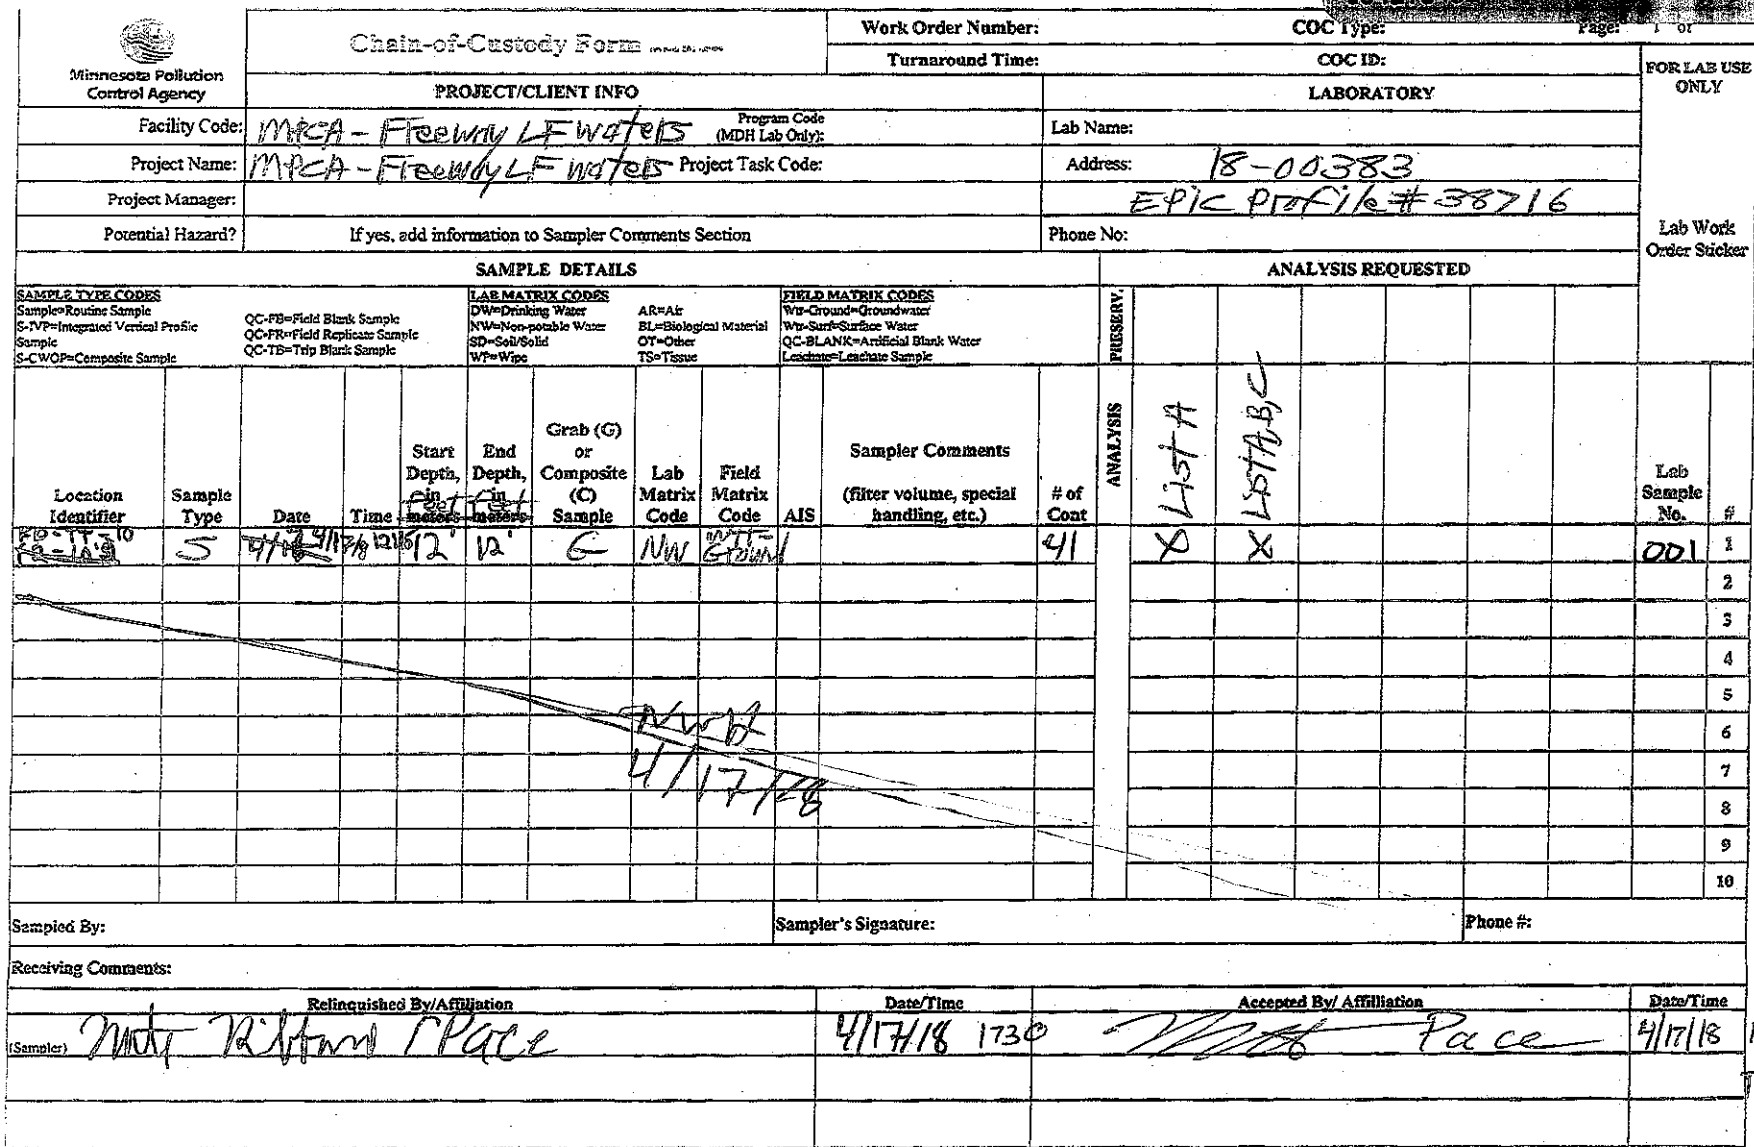 Work Order Number: COC Type: Page: 1 of
Chain-of-Custody Form
Turnaround Time: COC ID:
FOR LAB USE ONLY
Minnesota Pollution
Control Agency
PROJECT/CLIENT INFO LABORATORY
Facility Code: MPCA - Freeway LF Waters Program Code (MDH Lab Only): Lab Name:
Project Name: MPCA - Freeway LF Waters Project Task Code: Address: 18-00383
Project Manager: EPIC Profile # 38716
Potential Hazard? If yes, add information to Sampler Comments Section Phone No:
Lab Work
Order Sticker
SAMPLE DETAILS ANALYSIS REQUESTED
SAMPLE TYPE CODES
Sample=Routine Sample
S-IVP=Integrated Vertical Profile
Sample
S-CWOP=Composite Sample
QC-FB=Field Blank Sample
QC-FR=Field Replicate Sample
QC-TB=Trip Blank Sample
LAB MATRIX CODES
DW=Drinking Water
NW=Non-potable Water
SD=Soil/Solid
WP=Wipe
AR=Air
BL=Biological Material
OT=Other
TS=Tissue
FIELD MATRIX CODES
Wtr-Ground=Groundwater
Wtr-Surf=Surface Water
QC-BLANK=Artificial Blank Water
Leachate=Leachate Sample
PRESERV.
ANALYSIS
List A
List A,B,C
Location
Identifier
Sample
Type
Date
Time
Start
Depth,
in
meters
Feet
End
Depth,
in
meters
Feet
Grab (G)
or
Composite
(C)
Sample
Lab
Matrix
Code
Field
Matrix
Code
AIS
Sampler Comments
(filter volume, special
handling, etc.)
# of
Cont
Lab
Sample
No.
#
S 4/17/18 12' 12' G NW Wtr-Ground 41 X X 001 1
2
3
4
5
6
7
8
9
10
4/17/18
Sampled By: Sampler's Signature: Phone #:
Receiving Comments:
Relinquished By/Affiliation Date/Time Accepted By/ Affilliation Date/Time
(Sampler) / Pace 4/17/18 1730 Pace 4/17/18